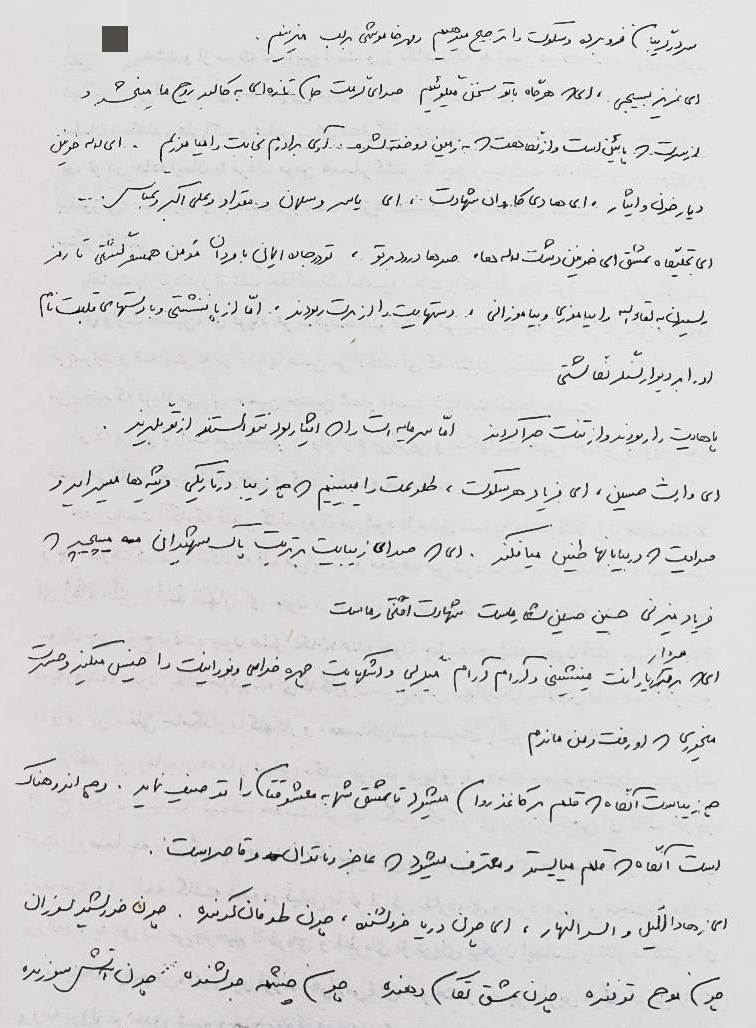 سر در گریبان فرو برده و سکوت را ترجیح می‌دهیم و مهر خاموشی بر لب میزنیم .
ای عزیز بسیجی ، ای که هر گاه با تو سخن میگوئیم صدای گرمت جان تازه‌ای به کالبد روح ما میبخشد و
از سرت که پائین است و از نگاهت که به زمین دوخته شده . آری برادرم نجابت را میآموزیم . ای لاله خونین
دیار خون و ایثار ، ای هادی کاروان شهادت ، ای یاسر و سلمان و مقداد و علی اکبر و عباس ...
ای تجلیگاه عشق ای خونین دشت لاله‌ها ، صدها درود بر تو ، تو در جاده ایمان با وجدان مؤمن همسفر گشتی تا رمز
رسیدن به لقاءالله را بیاموزی و بیاموزانی ، و دستهایت را از مچت ربودند ، اما از پا ننشستی و با رسهای
او را بر دیوار سنگر نگاشتی
پاهایت را ربودند و از تنت جدا کردند اما سرمایه‌ات را که ایثار بود نتوانستند از تو بگیرند .
ای وارث حسین ، ای فریاد هر سکوت ، طلوعت را میبینیم که چه زیبا در تاریکی و شبها میسراید و
صدایت که در بیابانها طنین میافکند . ای که صدای زیبایت بر تربت پاک شهیدان میپیچد که
فریاد میزنی حسین حسین شعار ماست شهادت افتخار ماست
ای که بر مزار یارانت مینشینی و آرام آرام میگریی و اشکهایت چهره خدایی و نورانیت را خیس میکند و حسرت
میخوری که او رفت و من ماندم
چه زیباست آنگاه که قلم بر کاغذ روان میشود تا عشق شما به معشوقتان را توصیف نماید . و چه اندوهناک
است آنگاه که قلم میایستد و معترف میشود که عاجز و ناتوان و قاصر است .
ای زهاد اللیل و اسد النهار ، ای چون دریا خروشنده ، چون طوفان کوبنده . چون خورشید سوزان
چون موج توفنده چون عشق تکان دهنده چون چشمه جوشنده چون آتش سوزنده